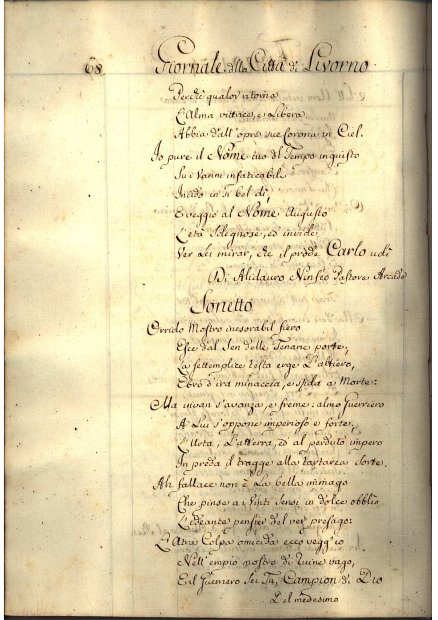 68
Giornale della Città di Livorno
Perchè qualor ritorna
L'Alma vittrice, e libera
Abbia dell'opre sue Corona in Ciel.
Io pure il Nome tuo del Tempo ingiusto
Su i Vanni infaticabili
Incido in sì bel dì,
E veggio al Nome Augusto
L'età sdegnose, ed invide
Ver Lei mirar, che il prode Carlo udì
Di Alidauro Ninfeo Pastore Arcade
Sonetto
Orrido Mostro inesorabil fiero
Esce dal Sen delle Tenarie porte;
La settemplice testa erge L'altiero,
Ebro d'ira minaccia, e sfida a Morte:
Ma invan s'avanza, e freme: almo Guerriero
A Lui s'oppone imperioso e forte;
L'Urta, L'atterra, ed al perduto impero
In preda il tragge alla tartarea sorte.
Ah fallace non è La bella immago
Che pinse a i Vinti Sensi in dolce obblio
L'edeante pensier del ver presago:
L'Atra Colpa omicida ecco vegg'io
Nell'empio mostro di ruine vago,
E il Guerriero Sei Tu, Campion di Dio
Del medesimo